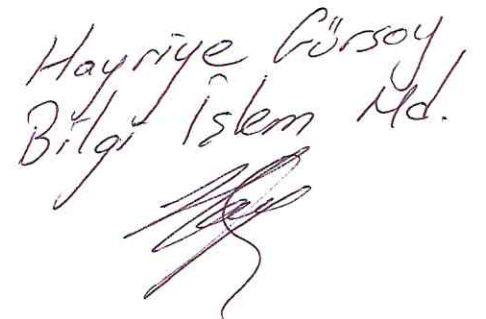 Hayriye Gürsoy
Bilgi İşlem Md.